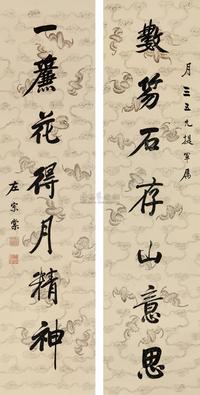 月三五九提军属
數笏石存山意思
一簾花得月精神
左宗棠